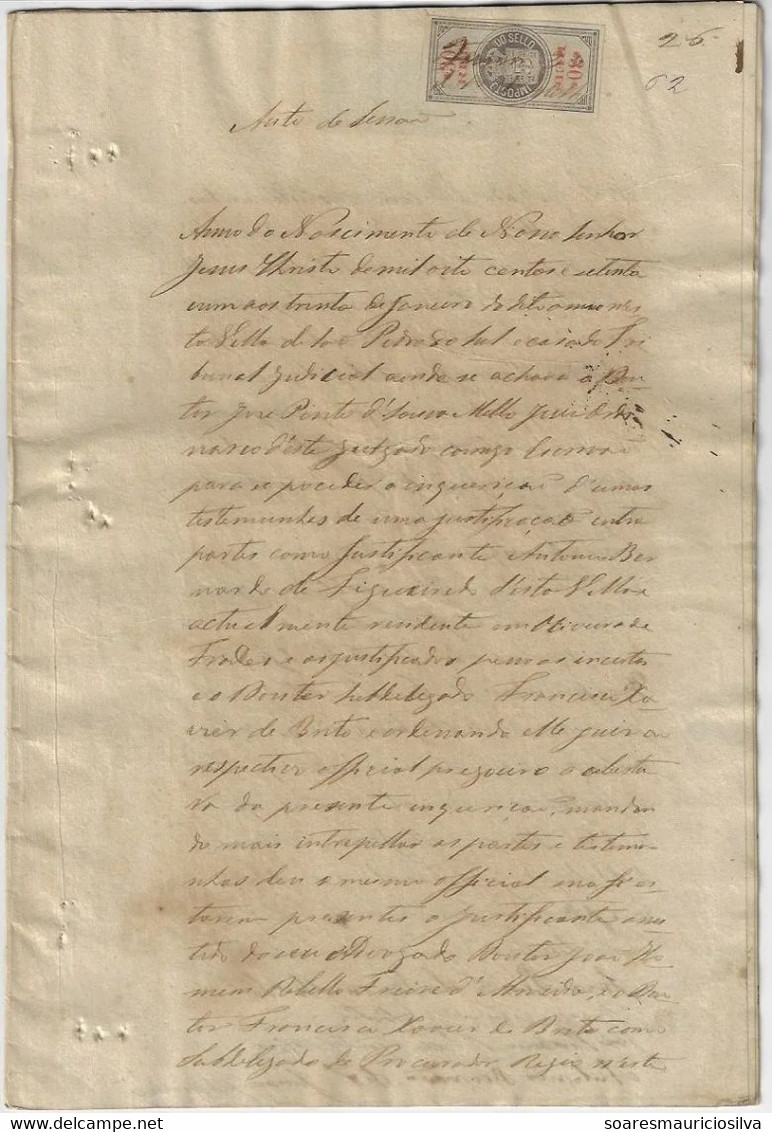 26
62
IMPOSTO DO SELLO
80
REIS
80
REIS
Auto de
Anno do Nascimento de Nosso Senhor
Jesus Christo de mil oito centos e setenta
e um aos trinta de Janeiro do dito anno nes
ta Villa de Sao Pedro do Sul e casa do Tri
bunal Judicial aonde se achava o Dou
tor Jose Pinto d'Sousa Mello Juiz Ordi
nario d'este Julgado comigo Escrivao
para se proceder a inquiriçaõ d'umas
testemunhas de uma justificaçaõ entre
partes como Justificante Antonio Ber
nardo de Figueiredo d'esta Villa e
actualmente residente em Oliveira de
Frades e os justificados pessoas incertas
e o Doutor Subdelegado Francisco Xa
vier de Brito e ordenando elle Juiz ao
respectivo official pregoeiro a abertu
ra da presente inquiriçaõ, mandan
do mais interpellar as partes e testemu
nhas deu o mesmo official sua fé es
tarem presentes o Justificante
do seu Advogado Doutor Joaõ Ho
mem Rebello Freire d'Almeida, e o Dou
tor Francisco Xavier de Brito como
Subdelegado do Procurador Regio n'este
soaresmauriciosilva